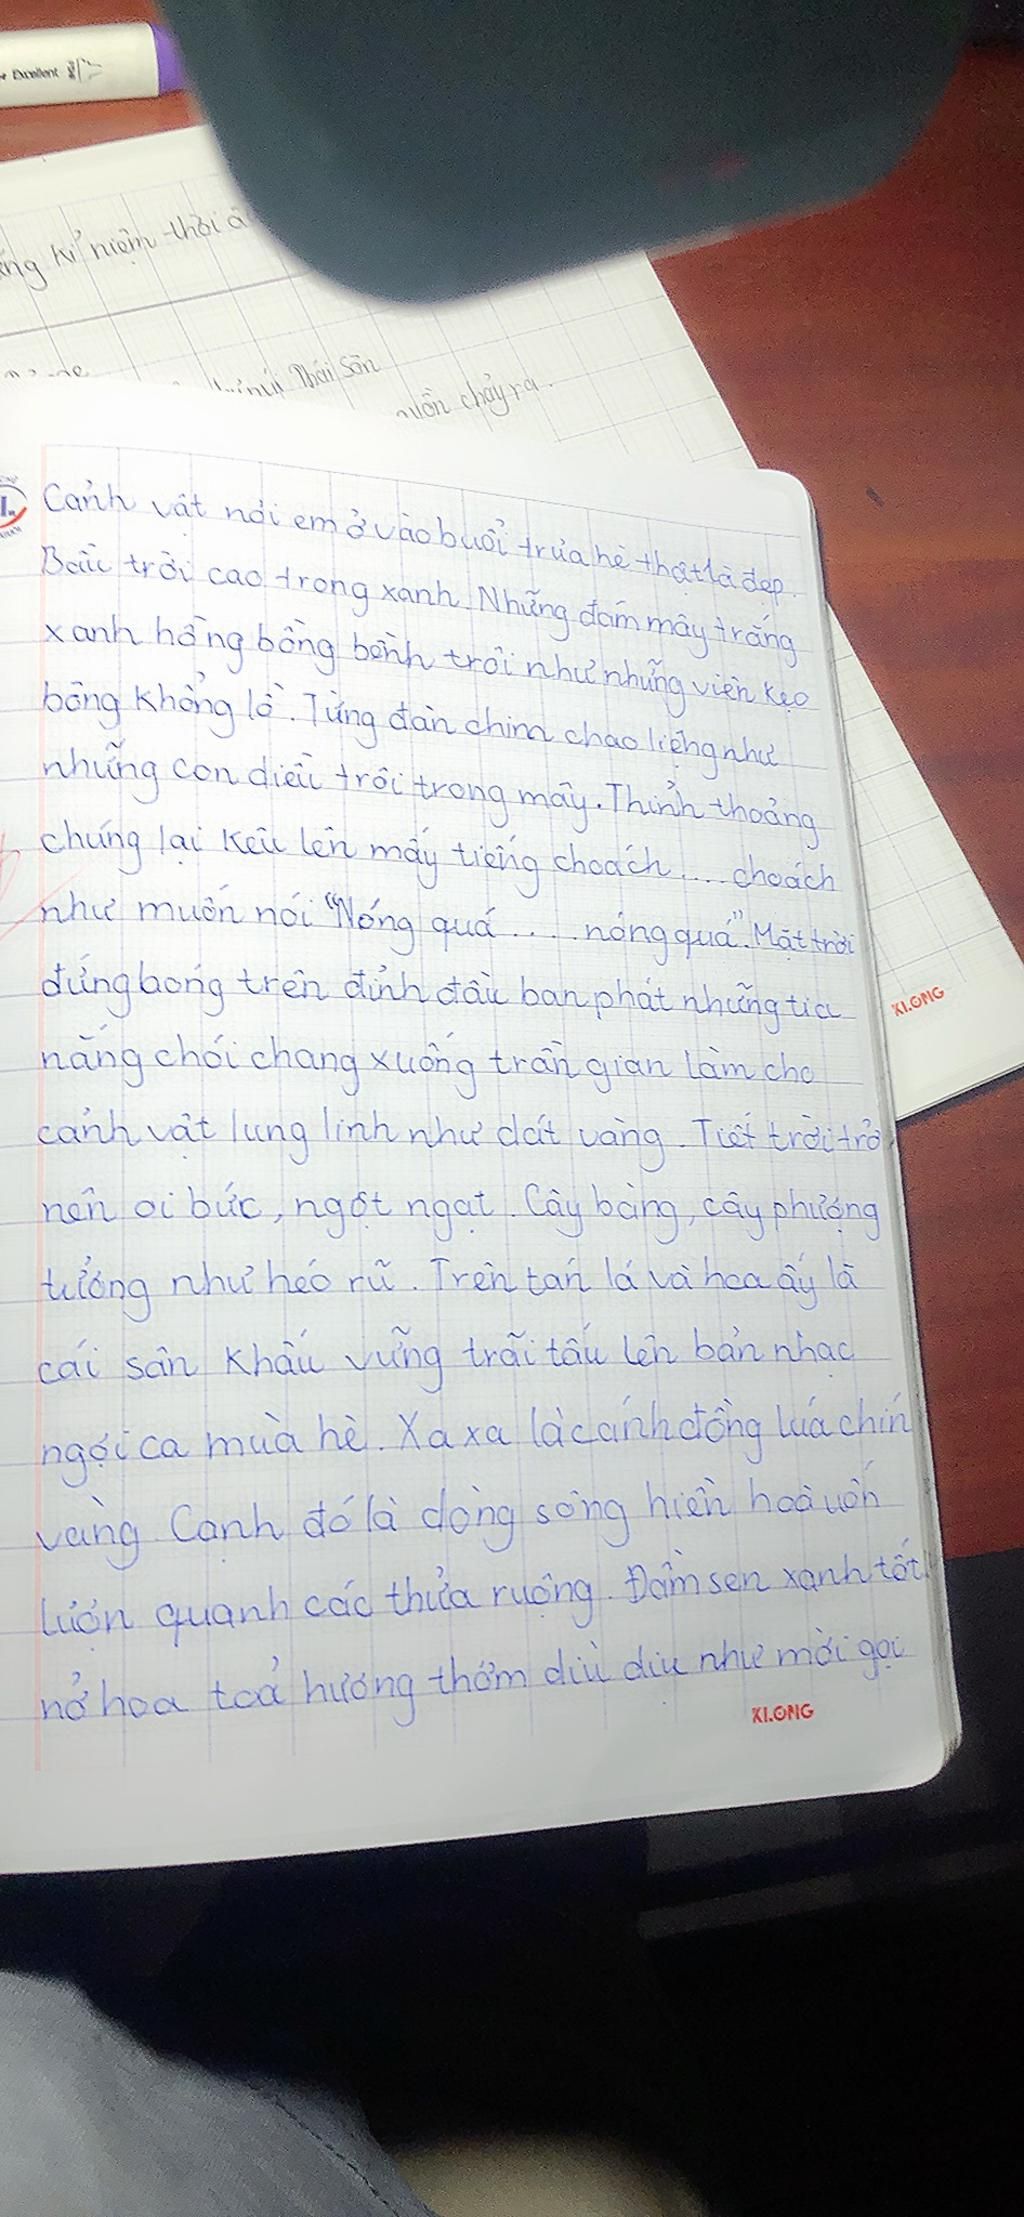 Excellent
kỉ niệm thời
Thái Sơn
chảy ra.
Cảnh vật nơi em ở vào buổi trưa hè thật là đẹp.
Bầu trời cao trong xanh. Những đám mây trắng
xanh hồng bồng bềnh trôi như những viên kẹo
bông khổng lồ. Từng đàn chim chao liệng như
những con diều trôi trong mây. Thỉnh thoảng
chúng lại kêu lên mấy tiếng choách .... choách
như muốn nói "Nóng quá .... nóng quá". Mặt trời
đứng bóng trên đỉnh đầu ban phát những tia
nắng chói chang xuống trần gian làm cho
cảnh vật lung linh như dát vàng. Tiết trời trở
nên oi bức, ngột ngạt. Cây bàng, cây phượng
tưởng như héo rũ. Trên tán lá và hoa ấy là
cái sân khấu vững trãi tấu lên bản nhạc
ngợi ca mùa hè. Xa xa là cánh đồng lúa chín
vàng. Cạnh đó là dòng sông hiền hoà uốn
lượn quanh các thửa ruộng. Đầm sen xanh tốt
nở hoa toả hương thơm dìu dịu như mời gọi
KLONG
KLONG